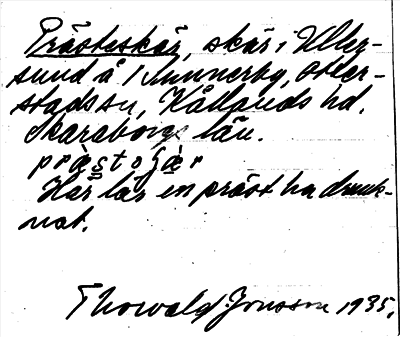 Prästeskär, skär i Uller-
sund å Munnerby, Otter-
stads sn, Kållands hd.
Skaraborgs län.
Här lär en präst ha drunk-
nat.
Thorvald Jonsson 1935.